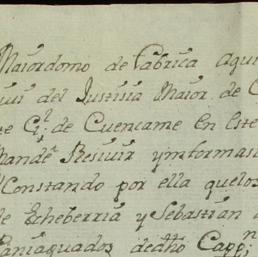 Maiordomo de fabrica aqui
del Justisia Maior de C
te Cl; de Cuencame en este
Mande Resiuir ymformas
Constando por ella quelos
de Echeberria y Sebastian
Paniaguados dedho Capp.n